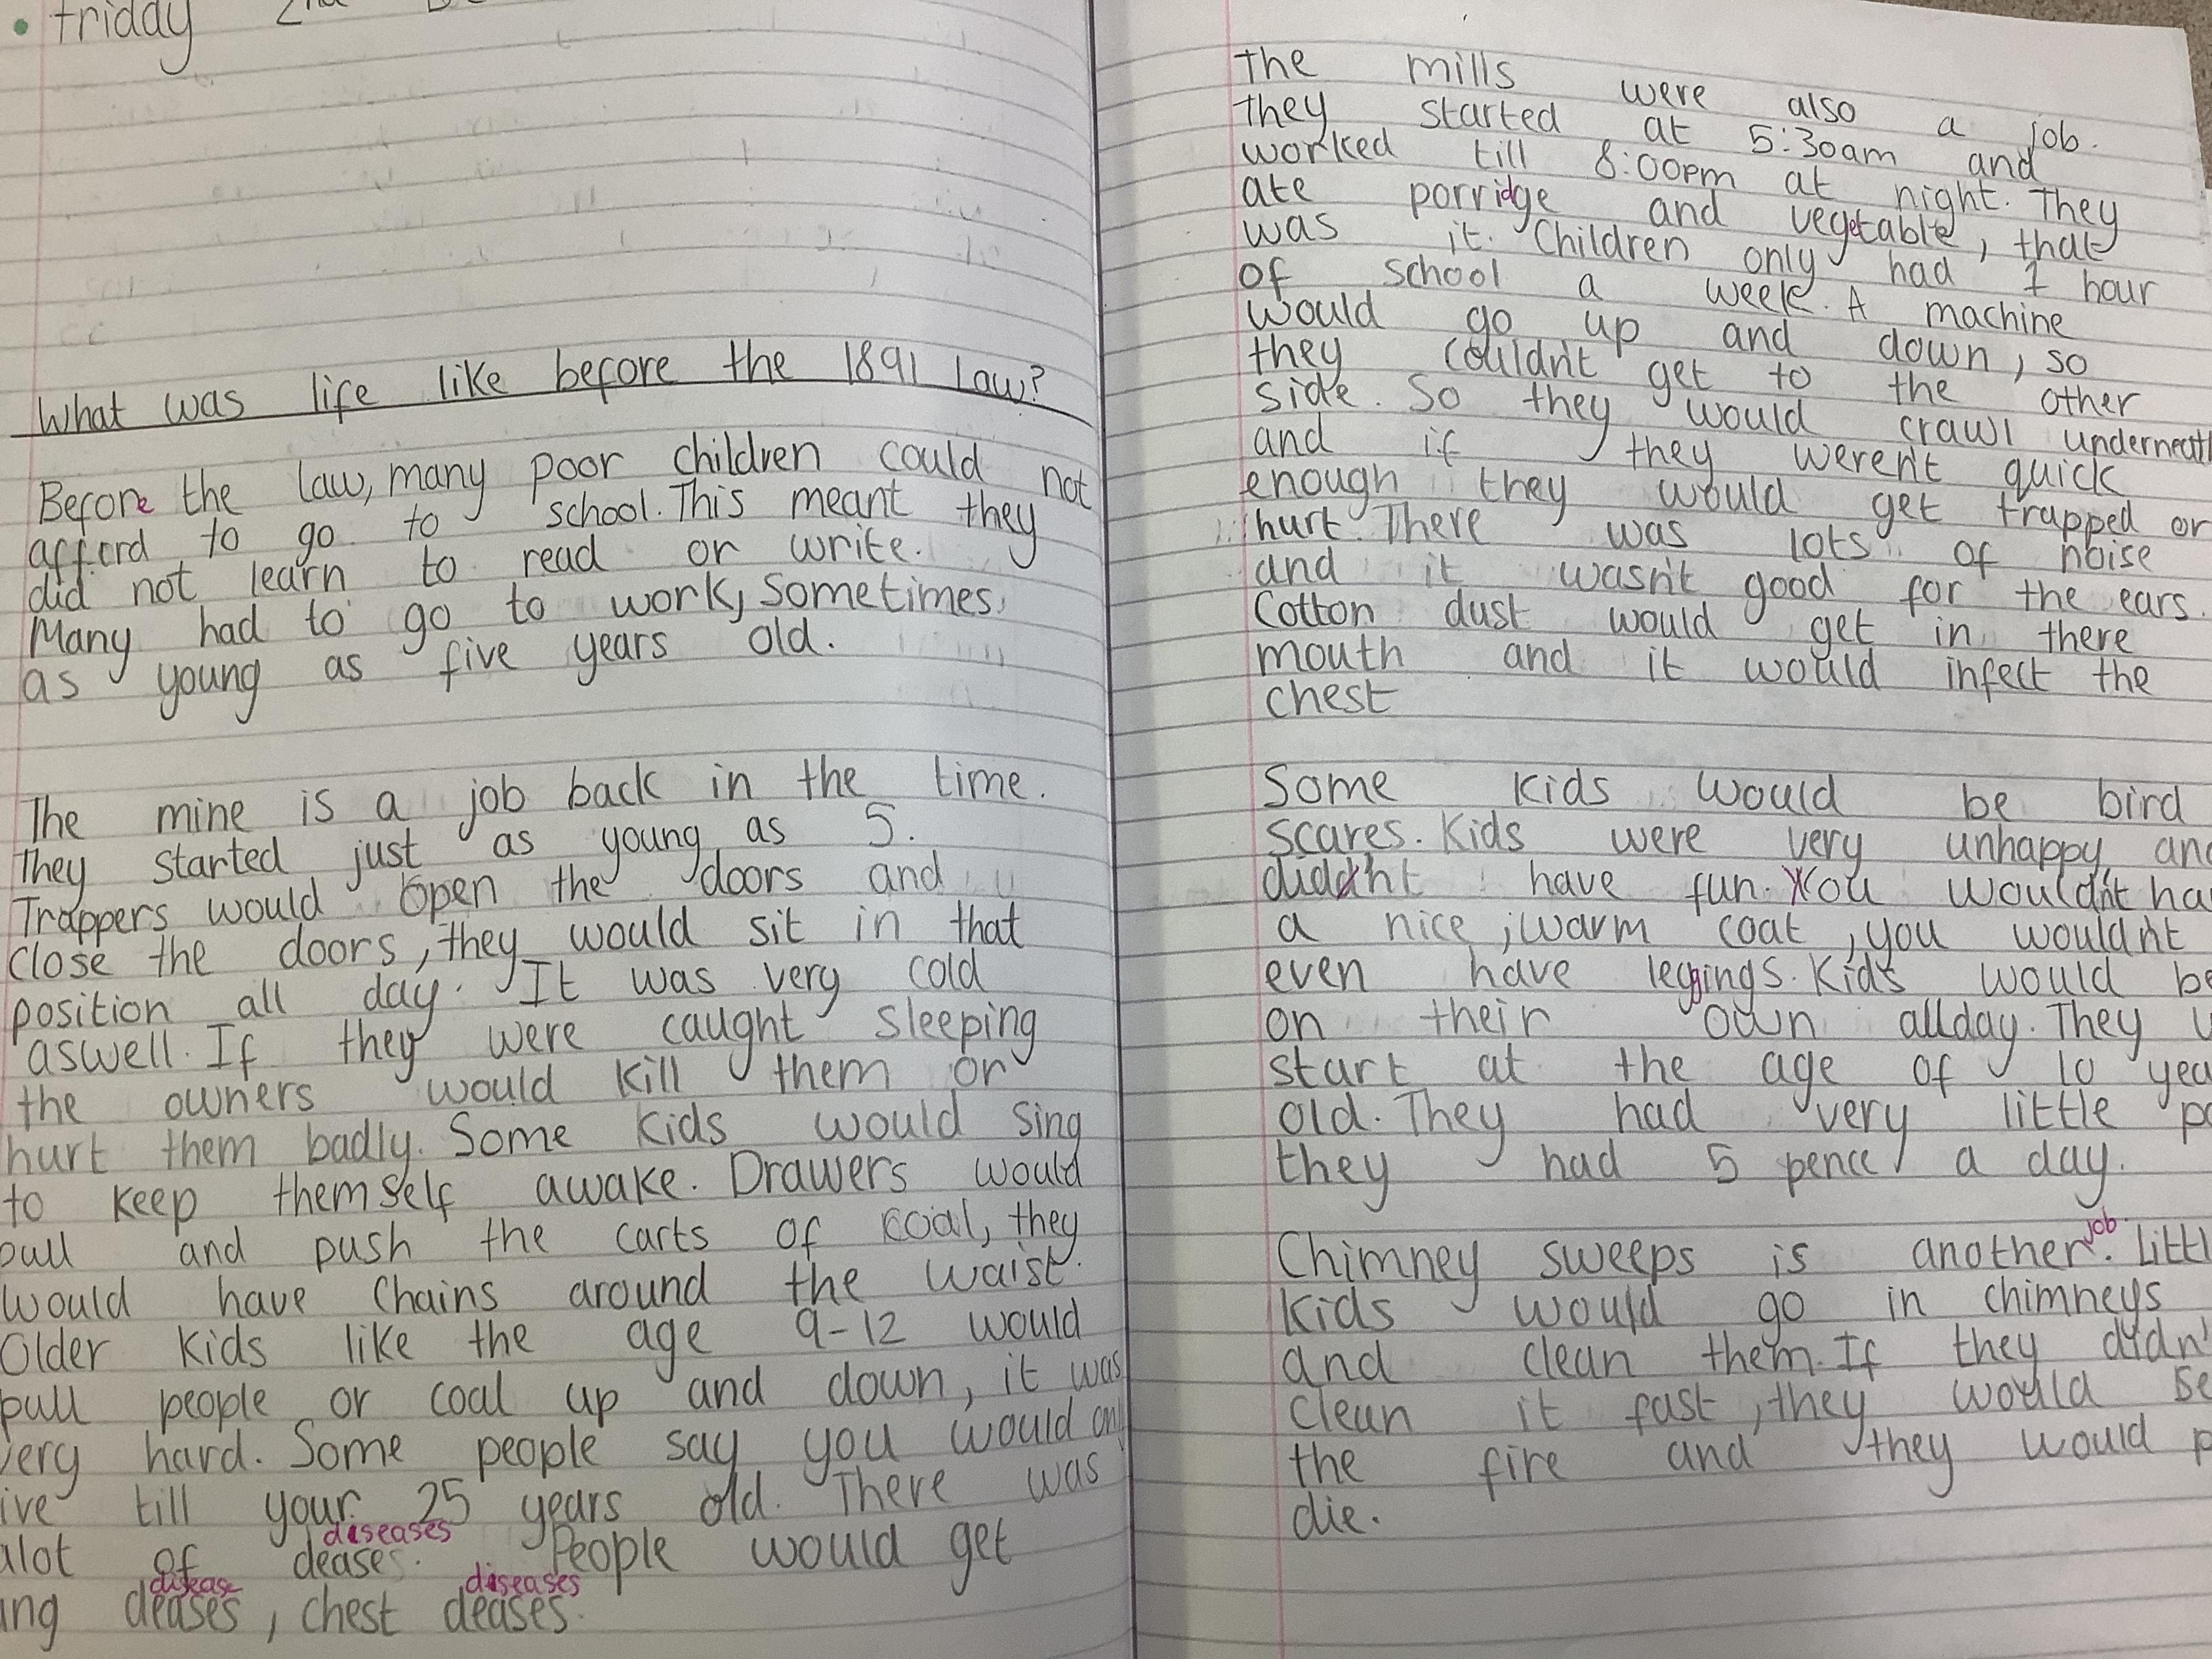 • friday 2nd
What was life like before the 1891 Law?
Before the law, many poor children could not
afford to go to school. This meant they
did not learn to read or write.
Many had to go to work, sometimes
as young as five years old.
The mine is a job back in the time.
They started just as young as 5.
Trappers would open the doors and
close the doors, they would sit in that
position all day. It was very cold
aswell. If they were caught sleeping
the owners would kill them or
hurt them badly. Some kids would sing
to keep themself awake. Drawers would
pull and push the carts of coal, they
would have chains around the waist.
Older kids like the age 9-12 would
pull people or coal up and down, it was
very hard. Some people say you would
till your 25 years old. There was
diseases
alot of dease. People would get
disease diseases
deases, chest deases.
the mills were also a job.
they started at 5:30am and
worked till 8:00pm at night. They
ate porridge and vegetable, that
was it. Children only had 1 hour
of school a week. A machine
would go up and down, so
they couldn't get to the other
side. So they would crawl underneath
and if they weren't quick
enough they would get trapped or
hurt. There was lots of noise
and it wasn't good for the ears.
Cotton dust would get in there
mouth and it would infect the
chest
Some kids would be bird
scares. Kids were very unhappy and
didn't have fun. You wouldn't
a nice, warm coat, you wouldn't
even have leggings. Kids would be
on their own allday. They
start at the age of 10
old. They had very little
they had 5 pence a day.
job
Chimney sweeps is another. Little
kids would go in chimneys
and clean them. If they didn't
clean it fast, they would
the fire and they would
die.